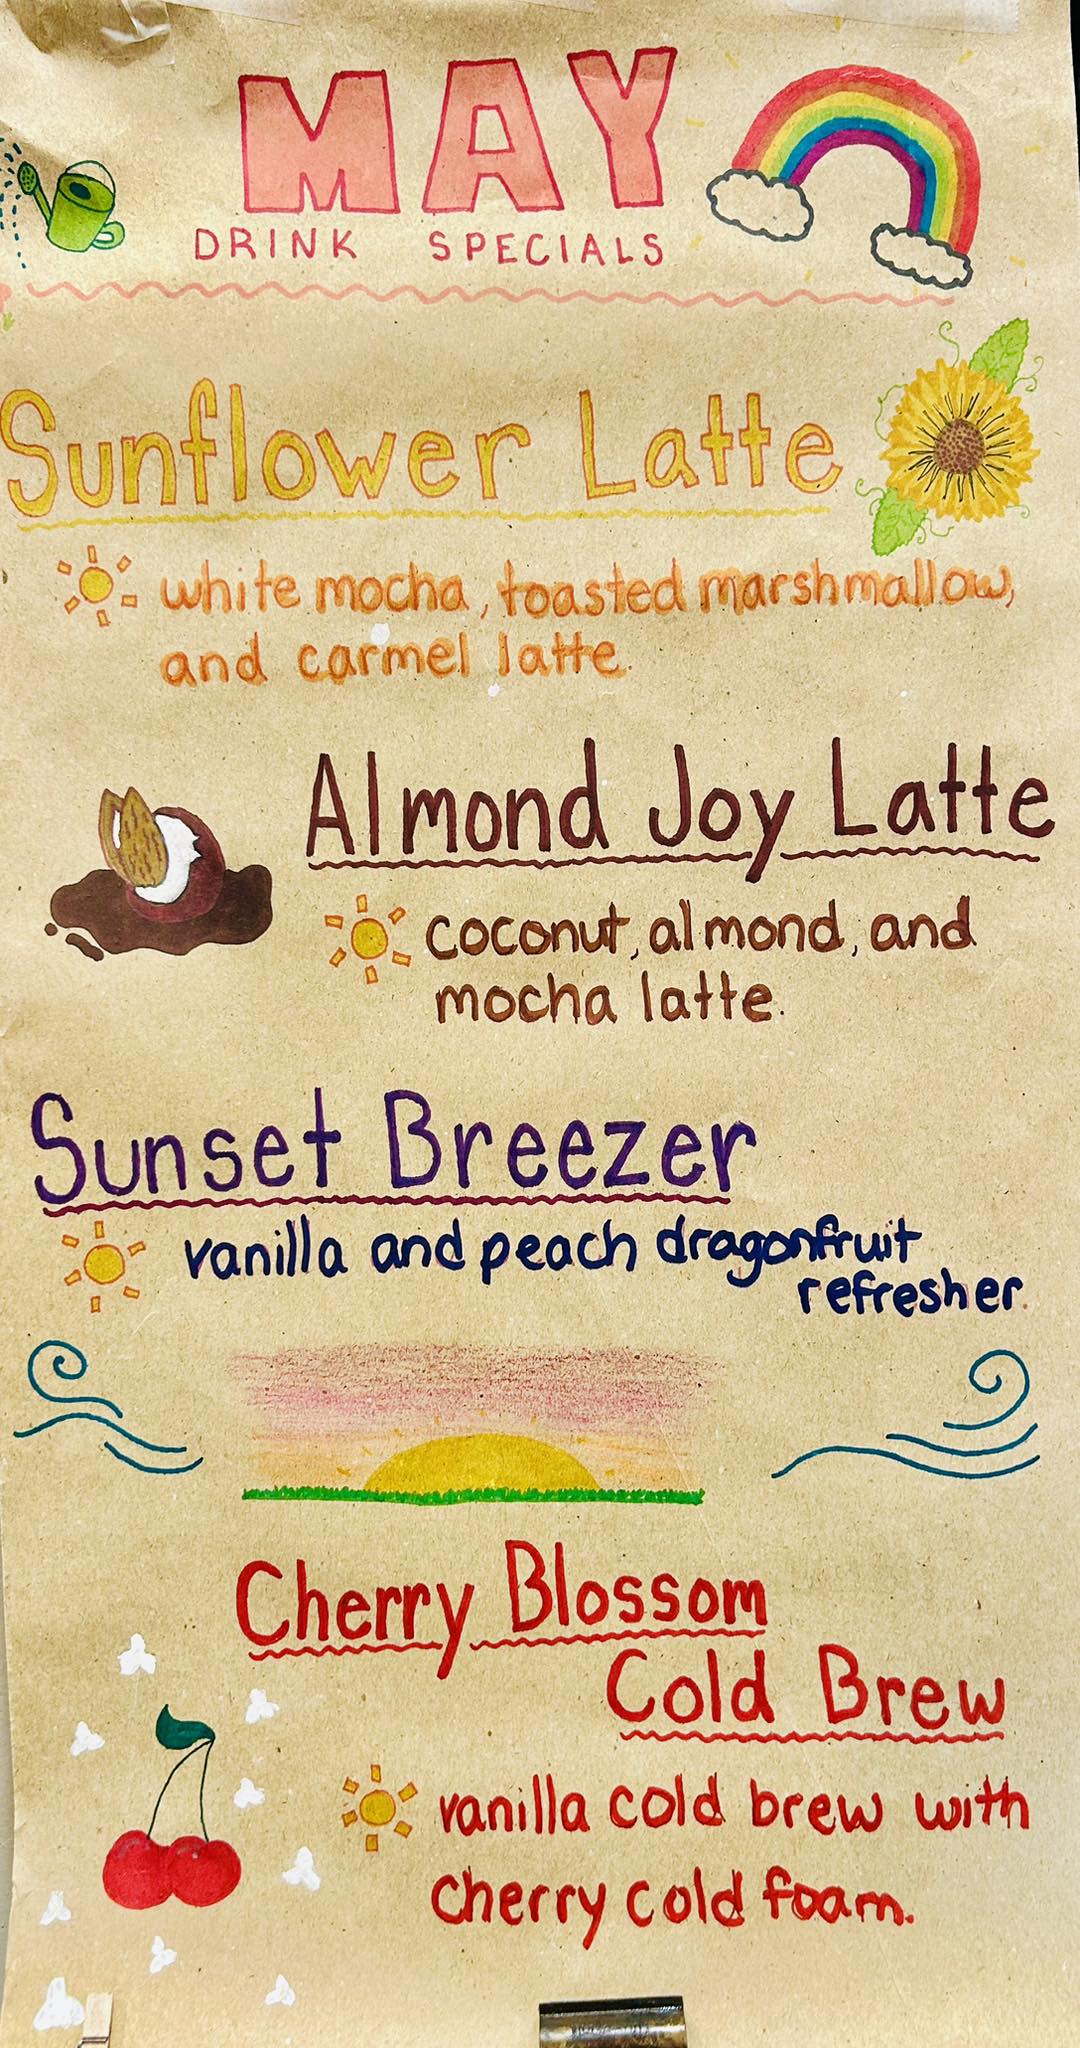 MAY
DRINK SPECIALS
Sunflower Latte
white mocha, toasted marshmallow,
and carmel latte.
Almond Joy Latte
coconut, almond, and
mocha latte.
Sunset Breezer
vanilla and peach dragonfruit
refresher.
Cherry Blossom
Cold Brew
vanilla cold brew with
cherry cold foam.